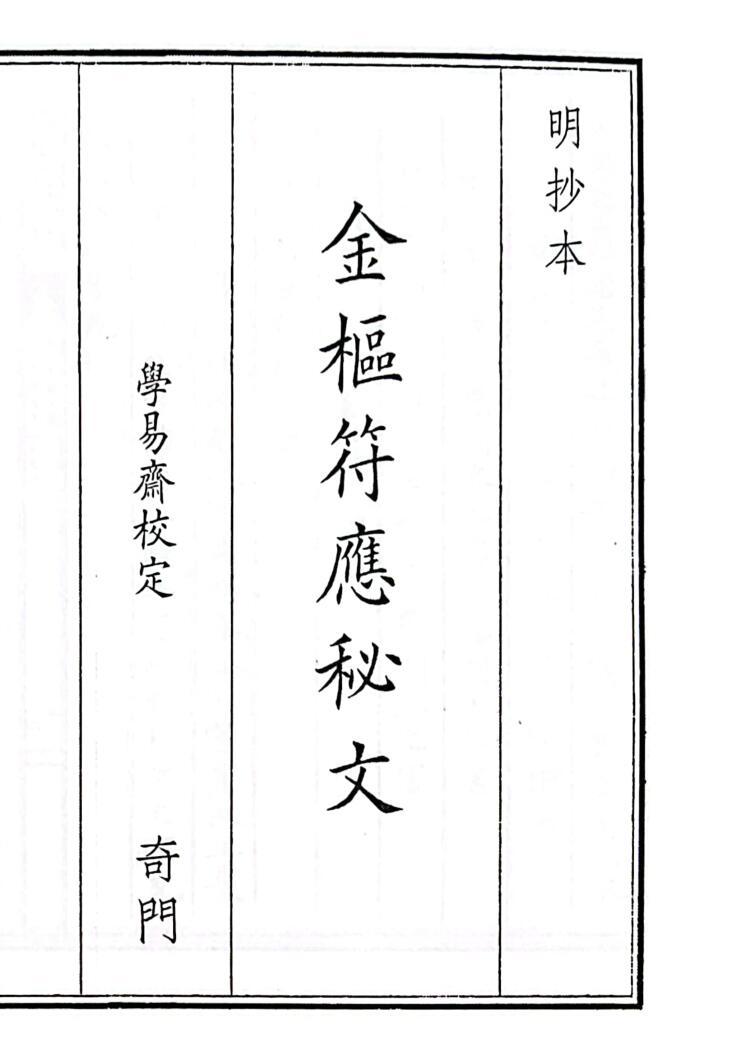 明抄本
金樞符應秘文
學易齋校定
奇門